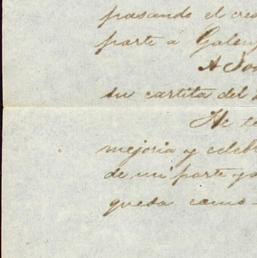 pasando el cre
parte á Galen
A Do
su cartita del
He te
mejoria y celeb
de mi parte ya
queda como